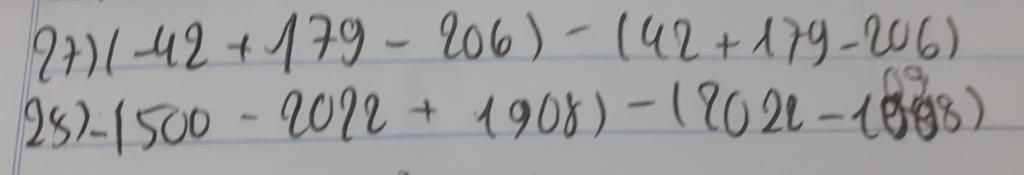 27)(-42 + 179 - 206) - (42 + 179 - 206)
28) - (500 - 2022 + 1908) - (2022 - 1908)